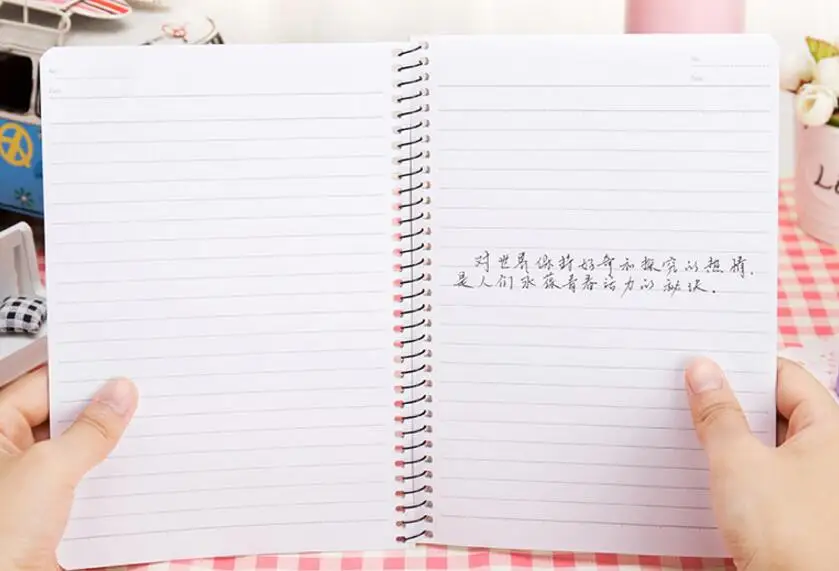 对世界保持好奇和探究的热情，
是人们永葆青春活力的秘诀．